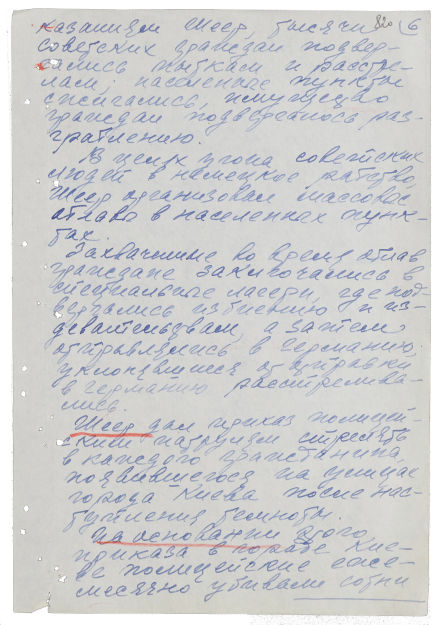 казаниям Шеер, тысячи 820 6
советских граждан подвер-
гались пыткам и расстре-
лам, населенные пункты
сжигались, имущество
граждан подвергалось раз-
граблению.
В целях угона советских
людей в немецкое рабство,
Шеер организовал массовые
облавы в населенных пунк-
тах.
Захваченные во время облав
граждане заключались в
специальные лагери, где под-
вергались избиению и из-
девательствам, а затем
отправлялись в Германию,
уклонявшиеся от отправки
в Германию расстрелива-
лись.
Шеер дал приказ полицей-
ским патрулям стрелять
в каждого гражданина
появившегося на улицах
города Киева после нас-
тупления темноты.
На основании этого
приказа в городе Кие-
ве полицейские еже-
месячно убивали сотни